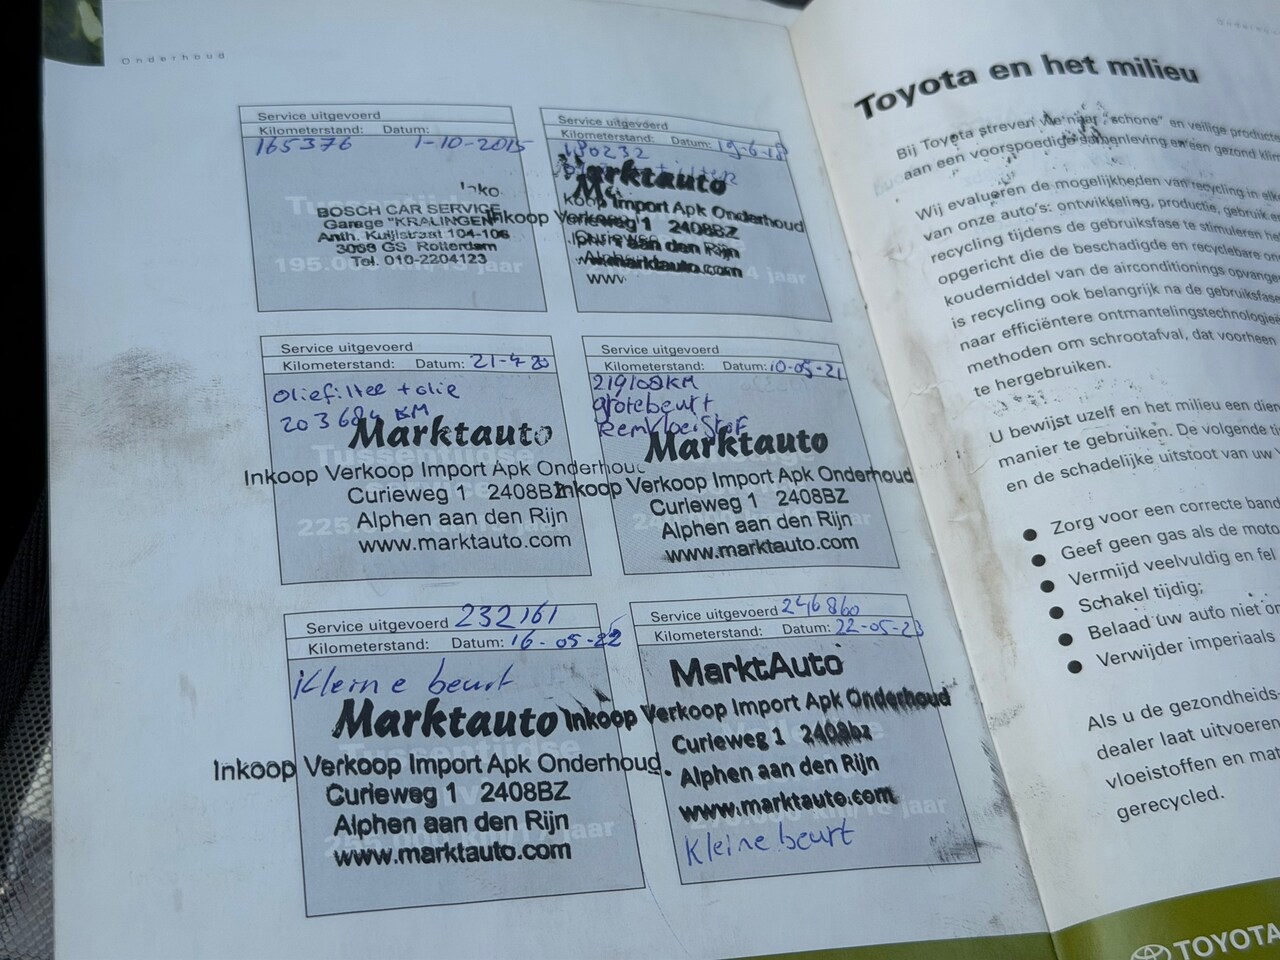 Onderhoud
Service uitgevoerd
Kilometerstand: Datum:
165376 1-10-2015
BOSCH CAR SERVICE
Garage "KRALINGEN"
Anth. Kuijlstraat 104-106
3066 GS Rotterdam
Tel. 010-2204123
195.000 jaar
Service uitgevoerd
Kilometerstand: Datum: 19-6-18
190232
Marktauto
Inkoop Verkoop Import Apk Onderhoud
Curieweg 1 2408BZ
Alphen aan den Rijn
www.marktauto.com
Service uitgevoerd
Kilometerstand: Datum: 21-4-20
oliefilter + olie
203684 KM
Marktauto
Inkoop Verkoop Import Apk Onderhoud
Curieweg 1 2408BZ
Alphen aan den Rijn
www.marktauto.com
Service uitgevoerd
Kilometerstand: Datum: 10-05-21
219108KM
grotebeurt
Remvloeistof
Marktauto
Inkoop Verkoop Import Apk Onderhoud
Curieweg 1 2408BZ
Alphen aan den Rijn
www.marktauto.com
Service uitgevoerd 232161
Kilometerstand: Datum: 16-05-22
Kleine beurt
Marktauto
Inkoop Verkoop Import Apk Onderhoud
Curieweg 1 2408BZ
Alphen aan den Rijn
www.marktauto.com
Service uitgevoerd 246860
Kilometerstand: Datum: 22-05-23
MarktAuto
Inkoop Verkoop Import Apk Onderhoud
Curieweg 1 2408bz
Alphen aan den Rijn
www.marktauto.com
Kleine beurt
Toyota en het milieu
Bij Toyota streven we naar "schone" en veilige producte
aan een voorspoedige samenleving en een gezond klim
Wij evalueren de mogelijkheden van recycling in elke
van onze auto's: ontwikkeling, productie, gebruik e
recycling tijdens de gebruiksfase te stimuleren he
opgericht die de beschadigde en recyclebare on
koudemiddel van de airconditionings opvange
is recycling ook belangrijk na de gebruiksfase
naar efficiëntere ontmantelingstechnologieë
methoden om schrootafval, dat voorheen
te hergebruiken.
U bewijst uzelf en het milieu een dien
manier te gebruiken. De volgende ti
en de schadelijke uitstoot van uw
Zorg voor een correcte band
Geef geen gas als de moto
Vermijd veelvuldig en fel
Schakel tijdig;
Belaad uw auto niet on
Verwijder imperiaals
Als u de gezondheids-
dealer laat uitvoeren
vloeistoffen en mat
gerecycled.
TOYOTA